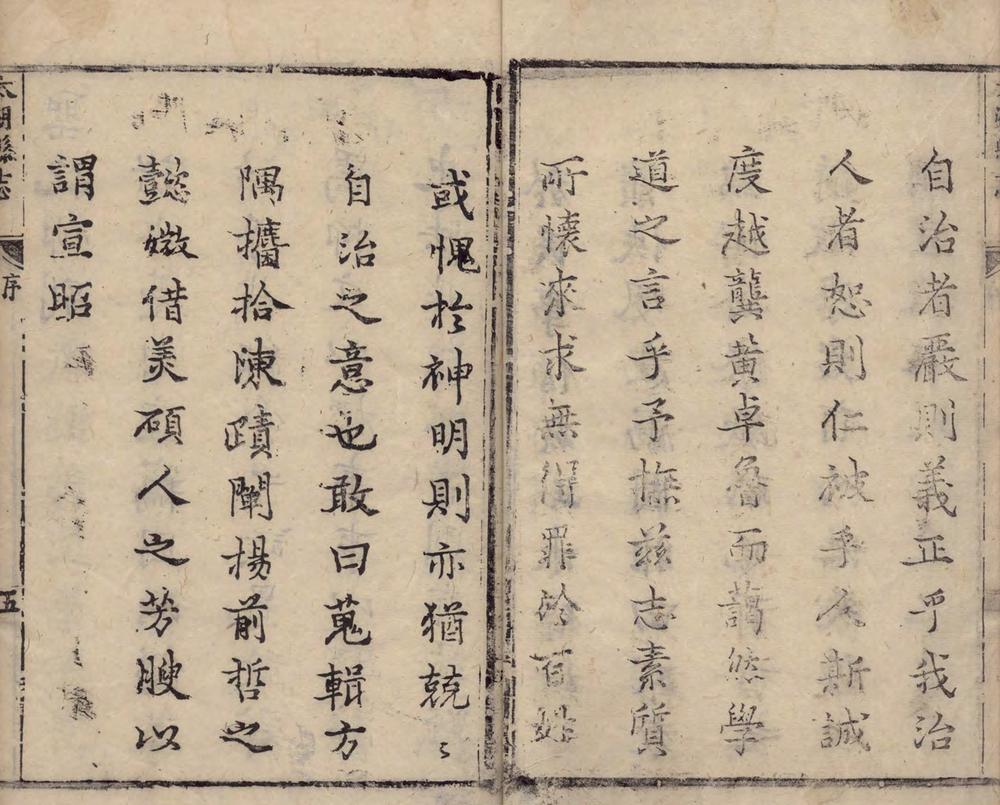 自治者嚴則義正乎我治
人者恕則仁被乎人斯誠
度越龔黃卓魯而藹然學
道之言乎予撫茲志素質
所懷來求無得罪於百姓
或愧於神明則亦猶兢〻
自治之意也敢曰蒐輯方
隅攟拾陳蹟闡揚前哲之
懿媺借美碩人之芳腴以
謂宣昭
太湖縣志
序
五